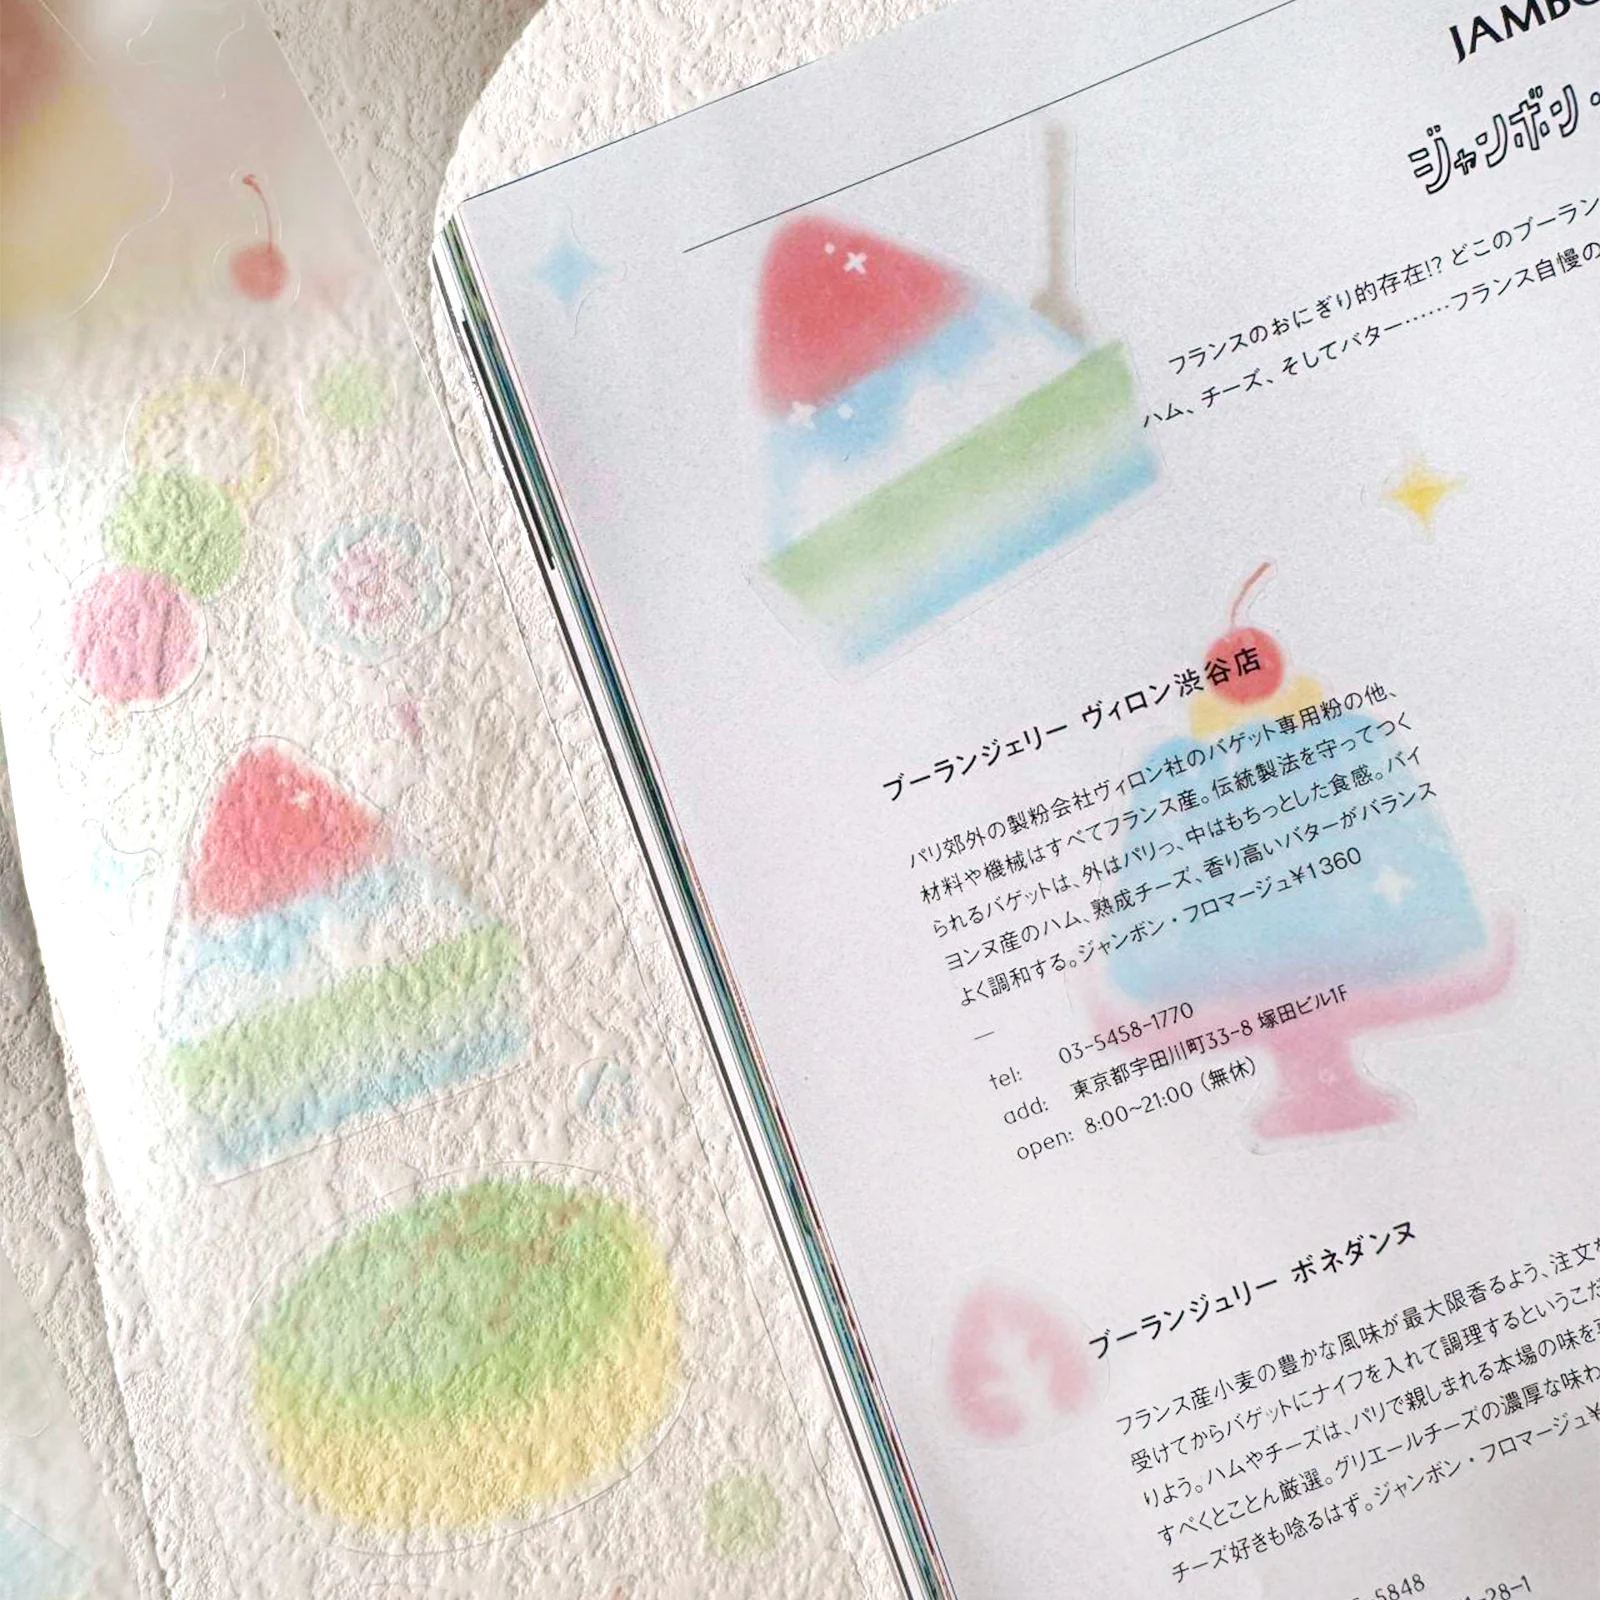 JAMBO
ジャンボン・
フランスのおにぎり的存在!? どこのブーラン
ハム、チーズ、そしてバター……フランス自慢の
ブーランジェリー ヴィロン渋谷店
パリ郊外の製粉会社ヴィロン社のバゲット専用粉の他、
材料や機械はすべてフランス産。伝統製法を守ってつく
られるバゲットは、外はパリっ、中はもちっとした食感。バイ
ヨンヌ産のハム、熟成チーズ、香り高いバターがバランス
よく調和する。ジャンボン・フロマージュ¥1360
—
tel: 03-5458-1770
add: 東京都宇田川町33-8 塚田ビル1F
open: 8:00~21:00 (無休)
ブーランジュリー ボネダンヌ
フランス産小麦の豊かな風味が最大限香るよう、注文
受けてからバゲットにナイフを入れて調理するというこだ
りよう。ハムやチーズは、パリで親しまれる本場の味を
すべくとことん厳選。グリエールチーズの濃厚な味わ
チーズ好きも唸るはず。ジャンボン・フロマージュ¥
-5848
-28-1